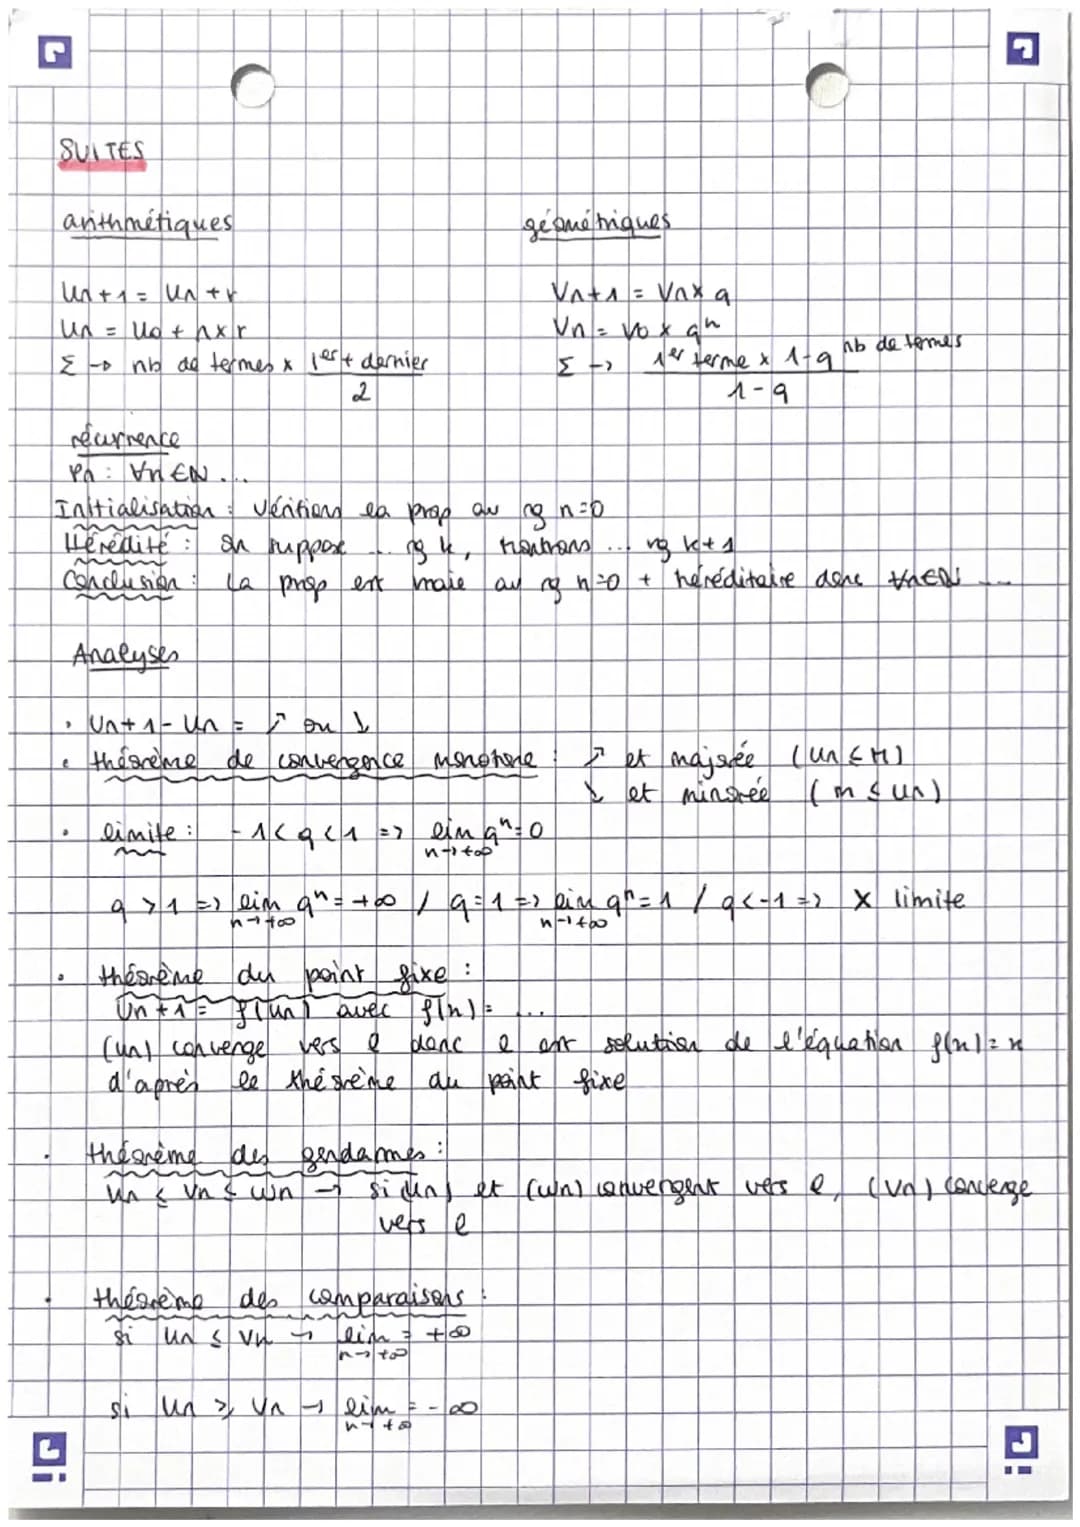 SUITES
arithmétiques
géométriques
Un+1 = Un + r
Vn+1 = Vn x q
Un = U0 + n x r
Vn = V0 x qⁿ
Σ → nb de termes x (1er + dernier) / 2
Σ → (1er terme x 1-q^nb de termes) / (1-q)
récurrence
Pn : ∀n∈N ...
Initialisation : Vérifions la prop au rg n=0
Hérédité : On suppose ... rg k, montrons ... rg k+1
Conclusion : La prop est vraie au rg n=0 + héréditaire donc ∀n∈N ...
Analyses
• Un+1 - Un = ↗ ou ↘
• théorème de convergence monotone : ↗ et majorée (Un ≤ M)
↘ et minorée (m ≤ Un)
• limite : -1 < q < 1 => lim qⁿ = 0
n→+∞
q > 1 => lim qⁿ = +∞ / q = 1 => lim qⁿ = 1 / q < -1 => X limite
n→+∞ n→+∞
• théorème du point fixe :
Un+1 = f(Un) avec f(x) = ...
(Un) converge vers l donc l est solution de l'équation f(x) = x
d'après le théorème du point fixe
• théorème des gendarmes :
Un ≤ Vn ≤ Wn → si (Un) et (Wn) convergent vers l, (Vn) converge
vers l
• théorème des comparaisons :
si Un ≤ Vn → lim = +∞
n→+∞
si Un ≥ Vn → lim = -∞
n→+∞